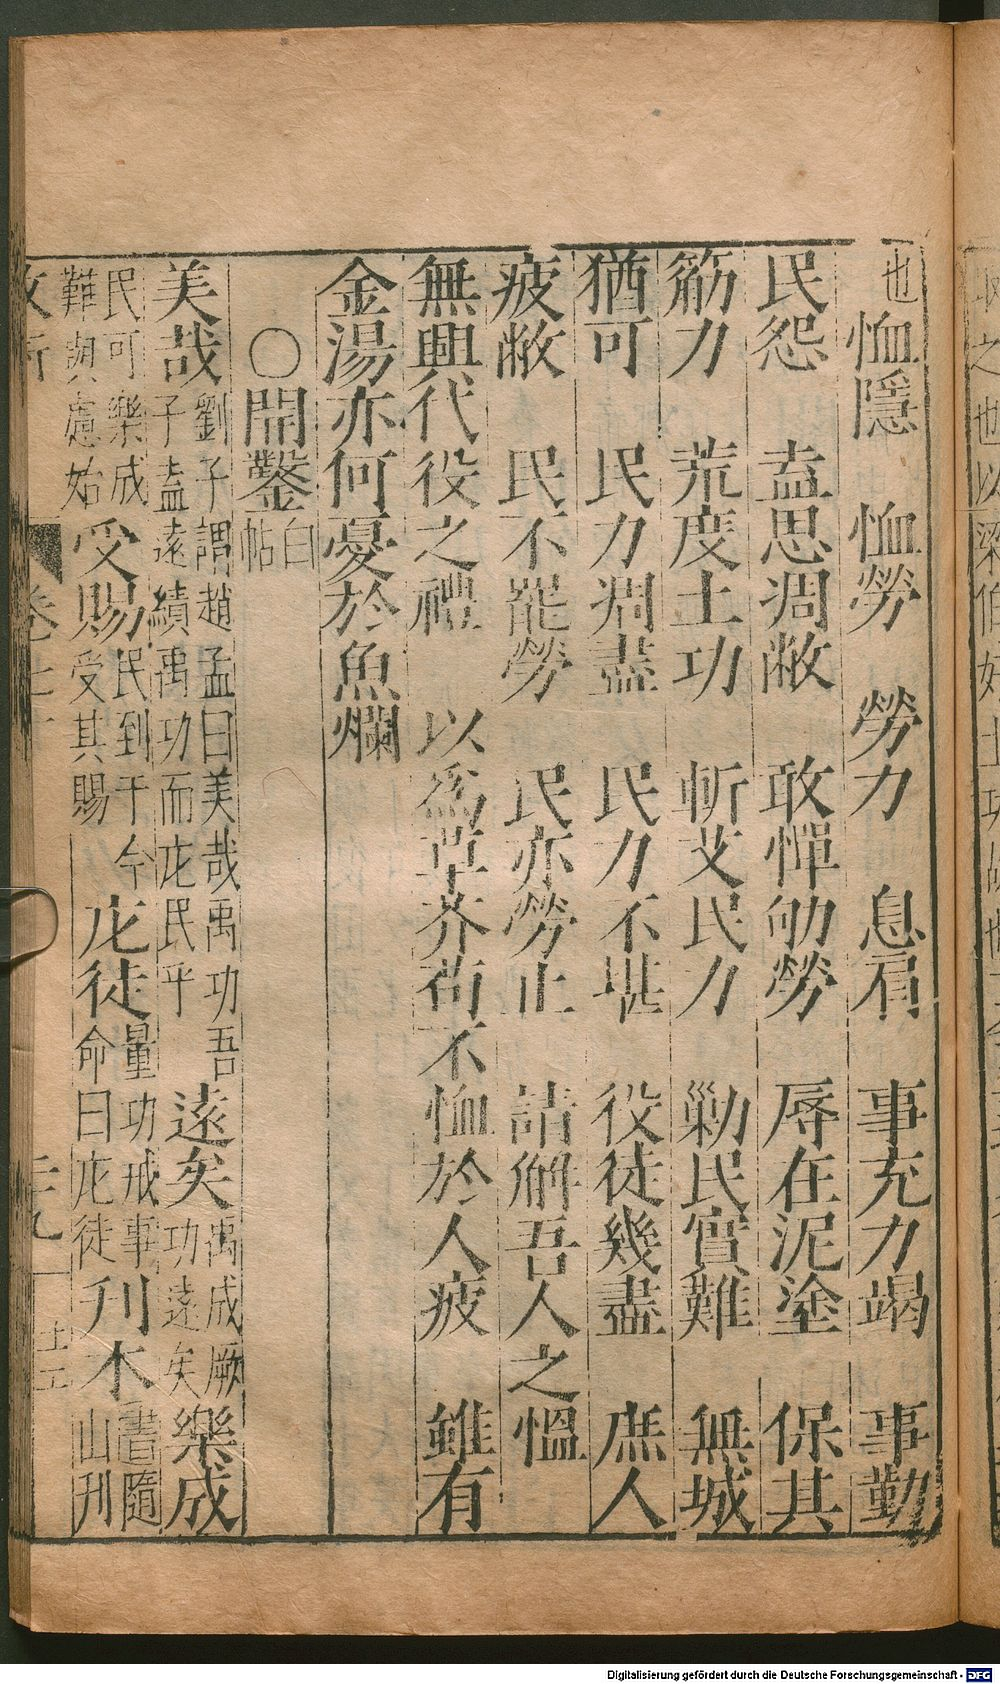 也 恤隱 恤勞 勞力 息肩 事充力竭 事勤
民怨 盍思凋敝 敢憚劬勞 辱在泥塗 保其
筋力 荒度土功 斬艾民力 勦民實難 無城
猶可 民力凋盡 民力不堪 役徒幾盡 庶人
疲敝 民不罷勞 民亦勞止 請解吾人之慍
無興代役之禮 以爲草芥苟不恤於人疲 雖有
金湯亦何憂於魚爛
〇開鑿白帖
美哉劉子謂趙孟曰美哉禹功吾子盍遠績禹功而庀民乎 遠矣禹成厥功遠矣 樂成
民可樂成難與慮始 受賜民到于今受其賜 庀徒量功戒事命曰庀徒 刋木書隨山刋
Digitalisierung gefördert durch die Deutsche Forschungsgemeinschaft - DFG